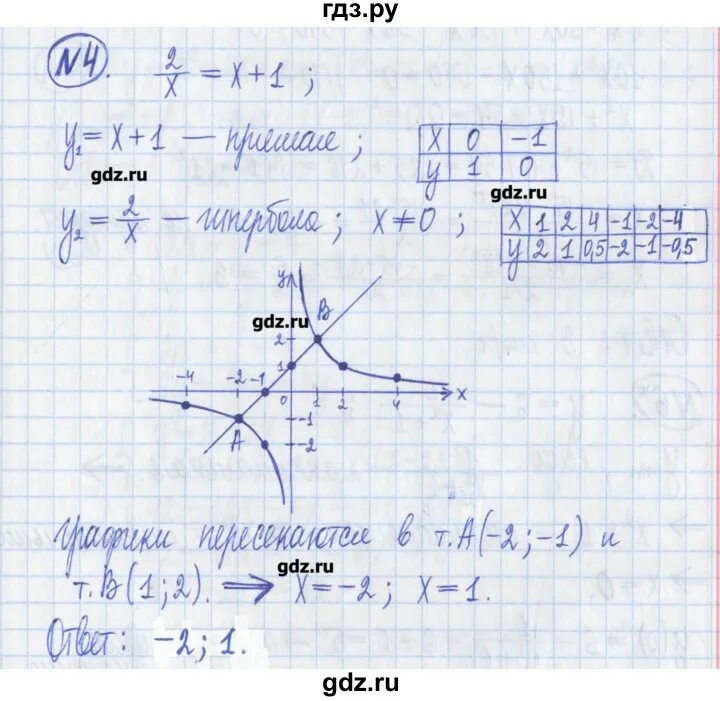 гдз.ру
№4. 2/x = x+1;
y₁ = x+1 — прямая; x 0 -1
y 1 0
gdz.ru
gdz.ru
y₂ = 2/x — гипербола; x ≠ 0; x 1 2 4 -1 -2 -4
y 2 1 0,5 -2 -1 -0,5
y
gdz.ru B
2
1
-4 -2 -1 0 1 2 4 x
-1
A
-2
Графики пересекаются в т.A(-2;-1) и
gdz.ru
т.B(1;2). ⟹ x=-2; x=1.
Ответ: -2; 1.
gdz.ru